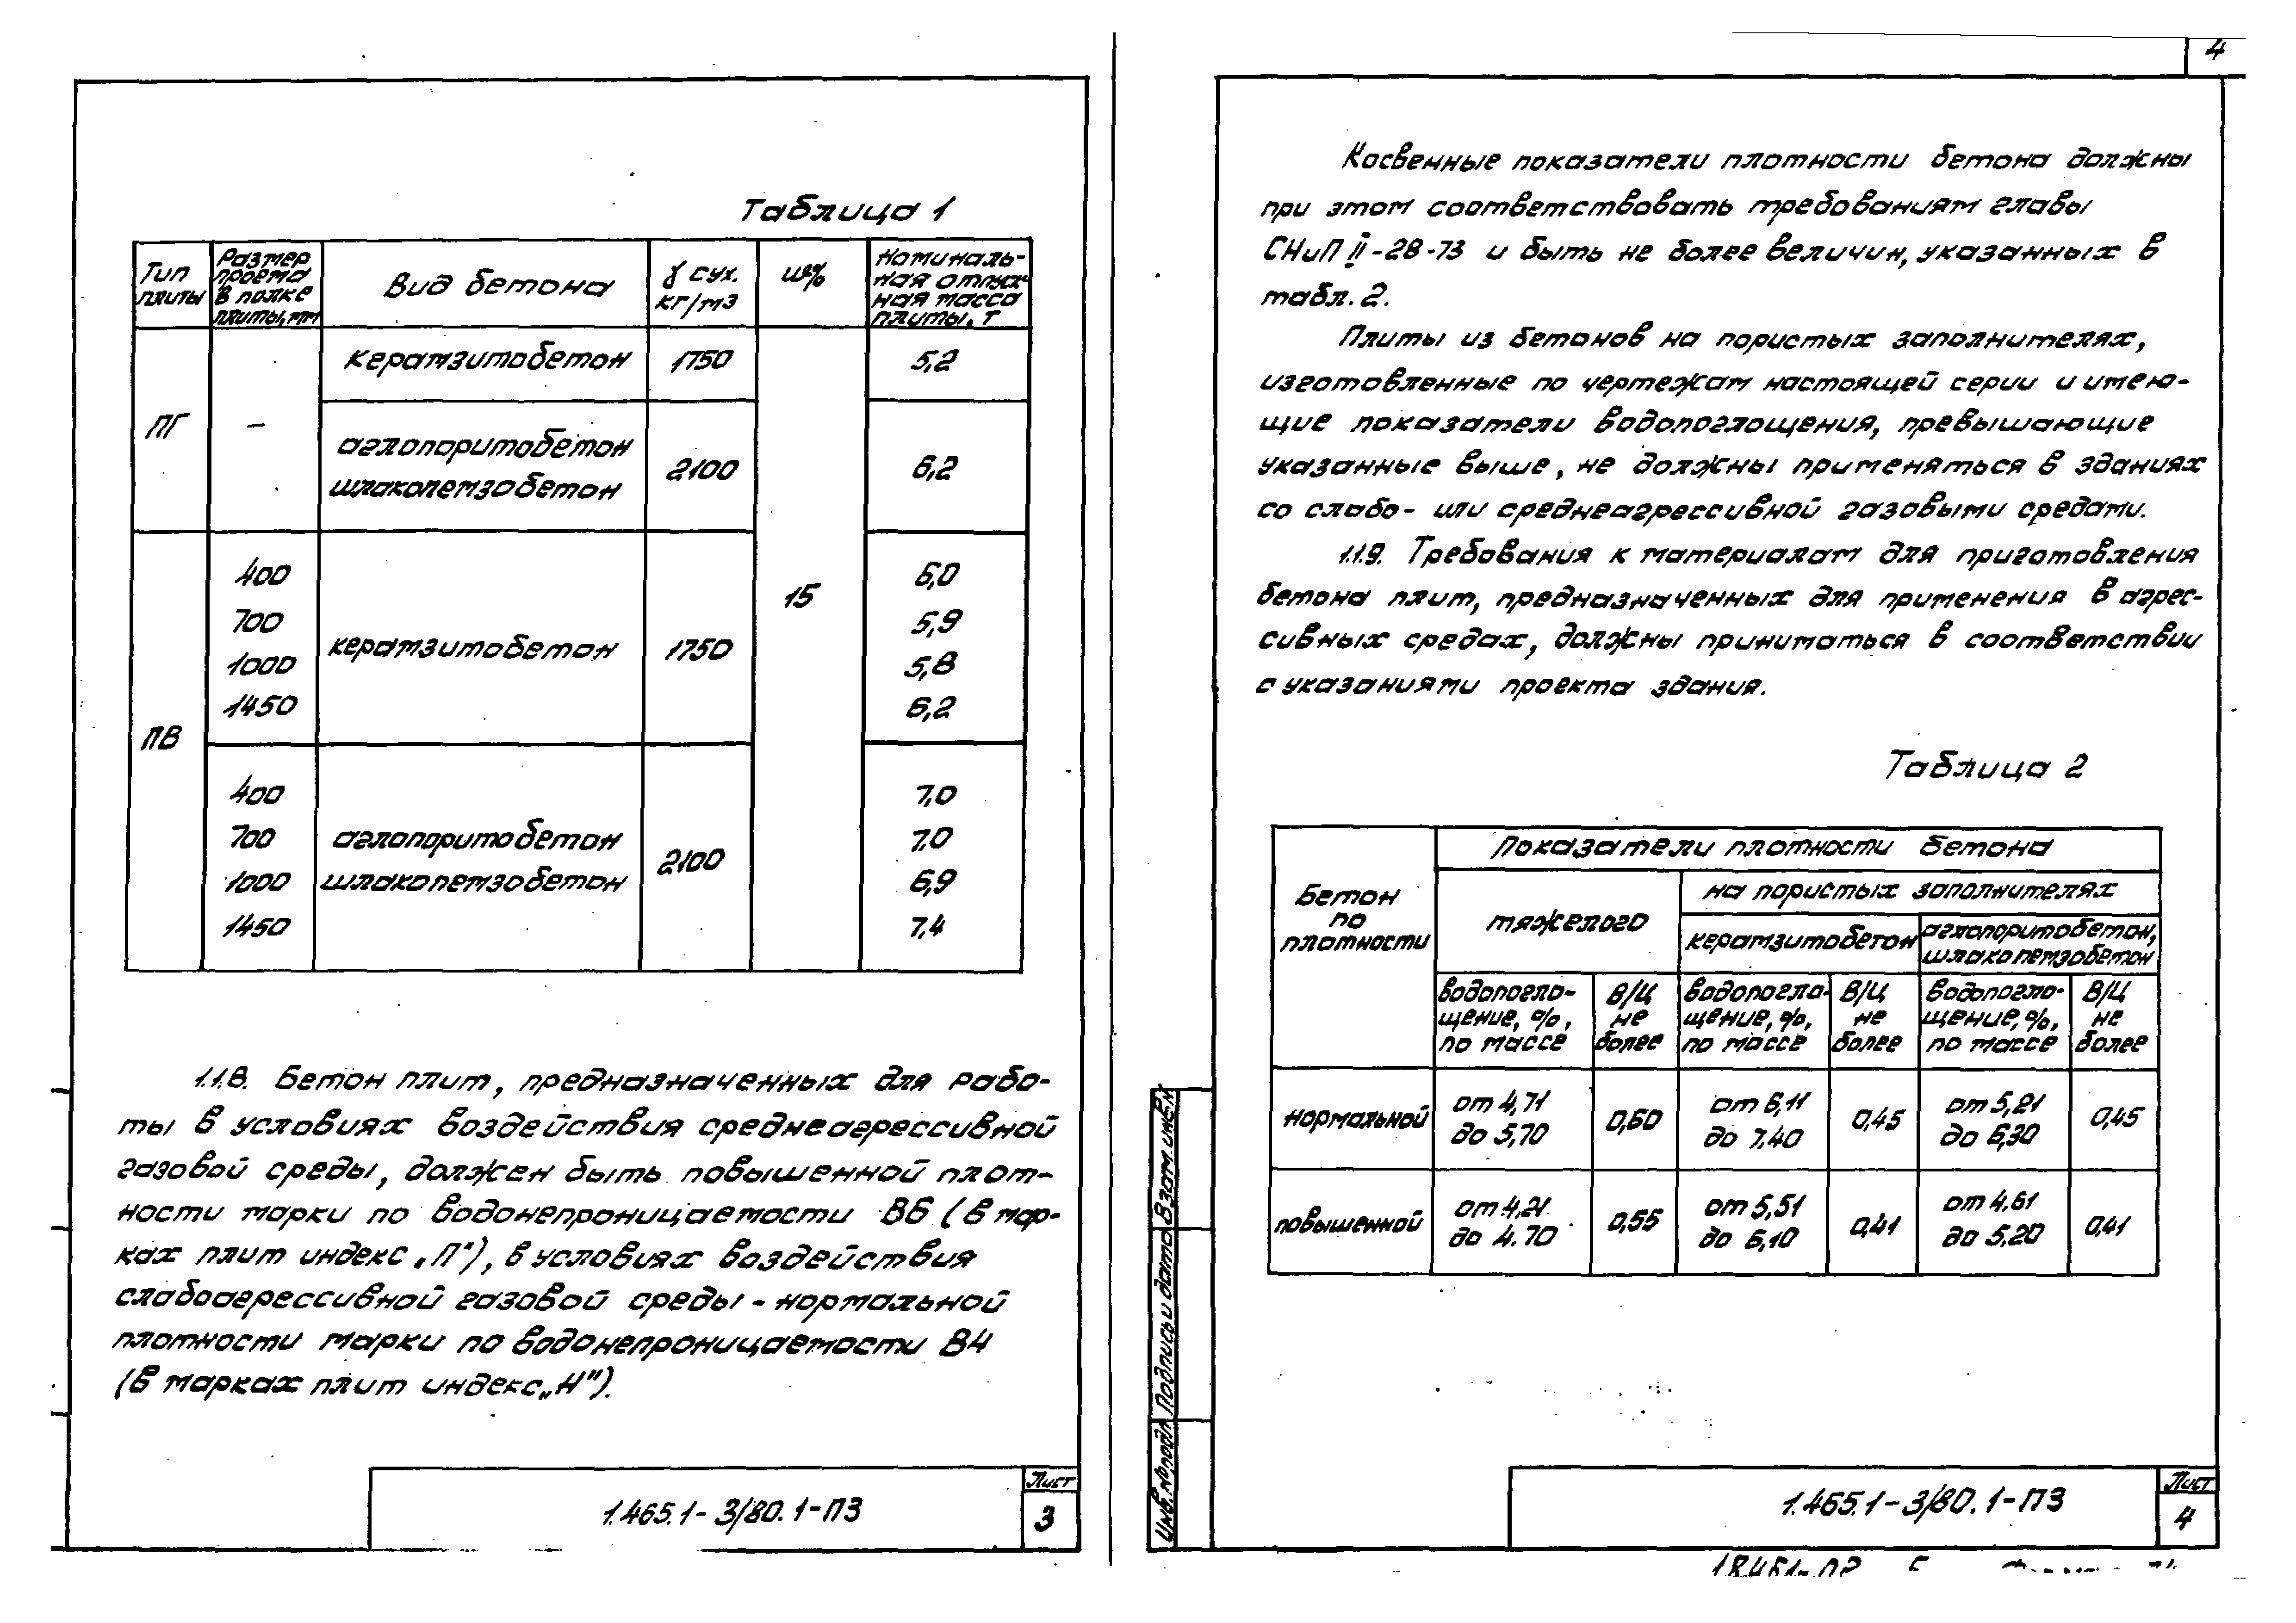 Таблица 1
Тип плиты
Размер проема в полке плиты, мм
Вид бетона
γ сух. кг/м3
w%
Номиналь-
ная отпуск-
ная масса
плиты, т
ПГ
–
керамзитобетон 1750 5,2
аглопоритобетон
шлакопемзобетон
2100 6,2
15
ПВ
400 6,0
700 5,9
керамзитобетон 1750
1000 5,8
1450 6,2
400 7,0
700 аглопоритобетон 7,0
2100
1000 шлакопемзобетон 6,9
1450 7,4
1.1.8. Бетон плит, предназначенных для рабо-
ты в условиях воздействия среднеагрессивной
газовой среды, должен быть повышенной плот-
ности марки по водонепроницаемости В6 (в мар-
ках плит индекс „П"), в условиях воздействия
слабоагрессивной газовой среды - нормальной
плотности марки по водонепроницаемости В4
(в марках плит индекс „Н").
1.465.1-3/80.1-ПЗ
Лист
3
4
Косвенные показатели плотности бетона должны
при этом соответствовать требованиям главы
СНиП II-28-73 и быть не более величин, указанных в
табл. 2.
Плиты из бетонов на пористых заполнителях,
изготовленные по чертежам настоящей серии и имею-
щие показатели водопоглощения, превышающие
указанные выше, не должны применяться в зданиях
со слабо- или среднеагрессивной газовыми средами.
1.1.9. Требования к материалам для приготовления
бетона плит, предназначенных для применения в агрес-
сивных средах, должны приниматься в соответствии
с указаниями проекта здания.
Таблица 2
Бетон
по
плотности
Показатели плотности бетона
тяжелого
на пористых заполнителях
керамзитобетон
аглопоритобетон,
шлакопемзобетон
водопогло- В/Ц водопогло- В/Ц водопогло- В/Ц
щение, %, не щение, %, не щение, %, не
по массе более по массе более по массе более
нормальной от 4,71 до 5,70 0,60 от 6,11 до 7.40 0,45 от 5,21 до 6,30 0,45
повышенной от 4,21 до 4.70 0,55 от 5,51 до 6,10 0,41 от 4,61 до 5,20 0,41
Инв.№подл.
Подпись и дата
Взам.инв.№
1.465.1-3/80.1-ПЗ
Лист
4